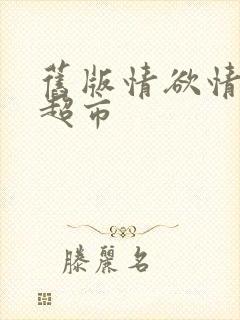 舊版情欲情
超市
滕麗名